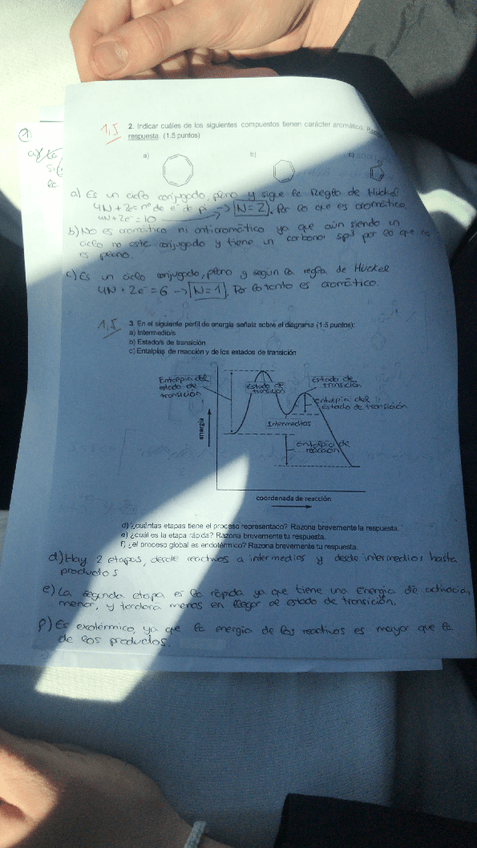 1
1,5
2. Indicar cuáles de los siguientes compuestos tienen carácter aromático.
respuesta. (1.5 puntos)
a)
b)
c)
a) Es un ciclo conjugado, plano y sigue la Regla de Hückel
4N+2= nº de e⁻ π → N=2. Por lo que es aromático.
4N+2e⁻=10
b) No es aromático ni antiaromático ya que aún siendo un
ciclo no está conjugado y tiene un carbono sp³ por lo que no
es plano.
c) Es un ciclo conjugado, plano y según la regla de Hückel
4N+2e⁻=6 → N=1. Por lo tanto es aromático.
1,5
3. En el siguiente perfil de energía señala sobre el diagrama (1.5 puntos):
a) Intermedio/s
b) Estado/s de transición
c) Entalpías de reacción y de los estados de transición
Entalpía del
estado de
transición
estado de
transición
estado de
transición
entalpía del
estado de transición
Intermedios
entalpía de
reacción
energía
coordenada de reacción
d) ¿cuántas etapas tiene el proceso representado? Razona brevemente la respuesta.
e) ¿cuál es la etapa rápida? Razona brevemente tu respuesta.
f) ¿el proceso global es endotérmico? Razona brevemente tu respuesta.
d) Hay 2 etapas, desde reactivos a intermedios y desde intermedios hasta
productos
e) La segunda etapa es la rápida ya que tiene una Energía de
menor, y tardará menos en llegar al estado de transición.
f) Es exotérmico, ya que la energía de los reactivos es mayor que la
de los productos.